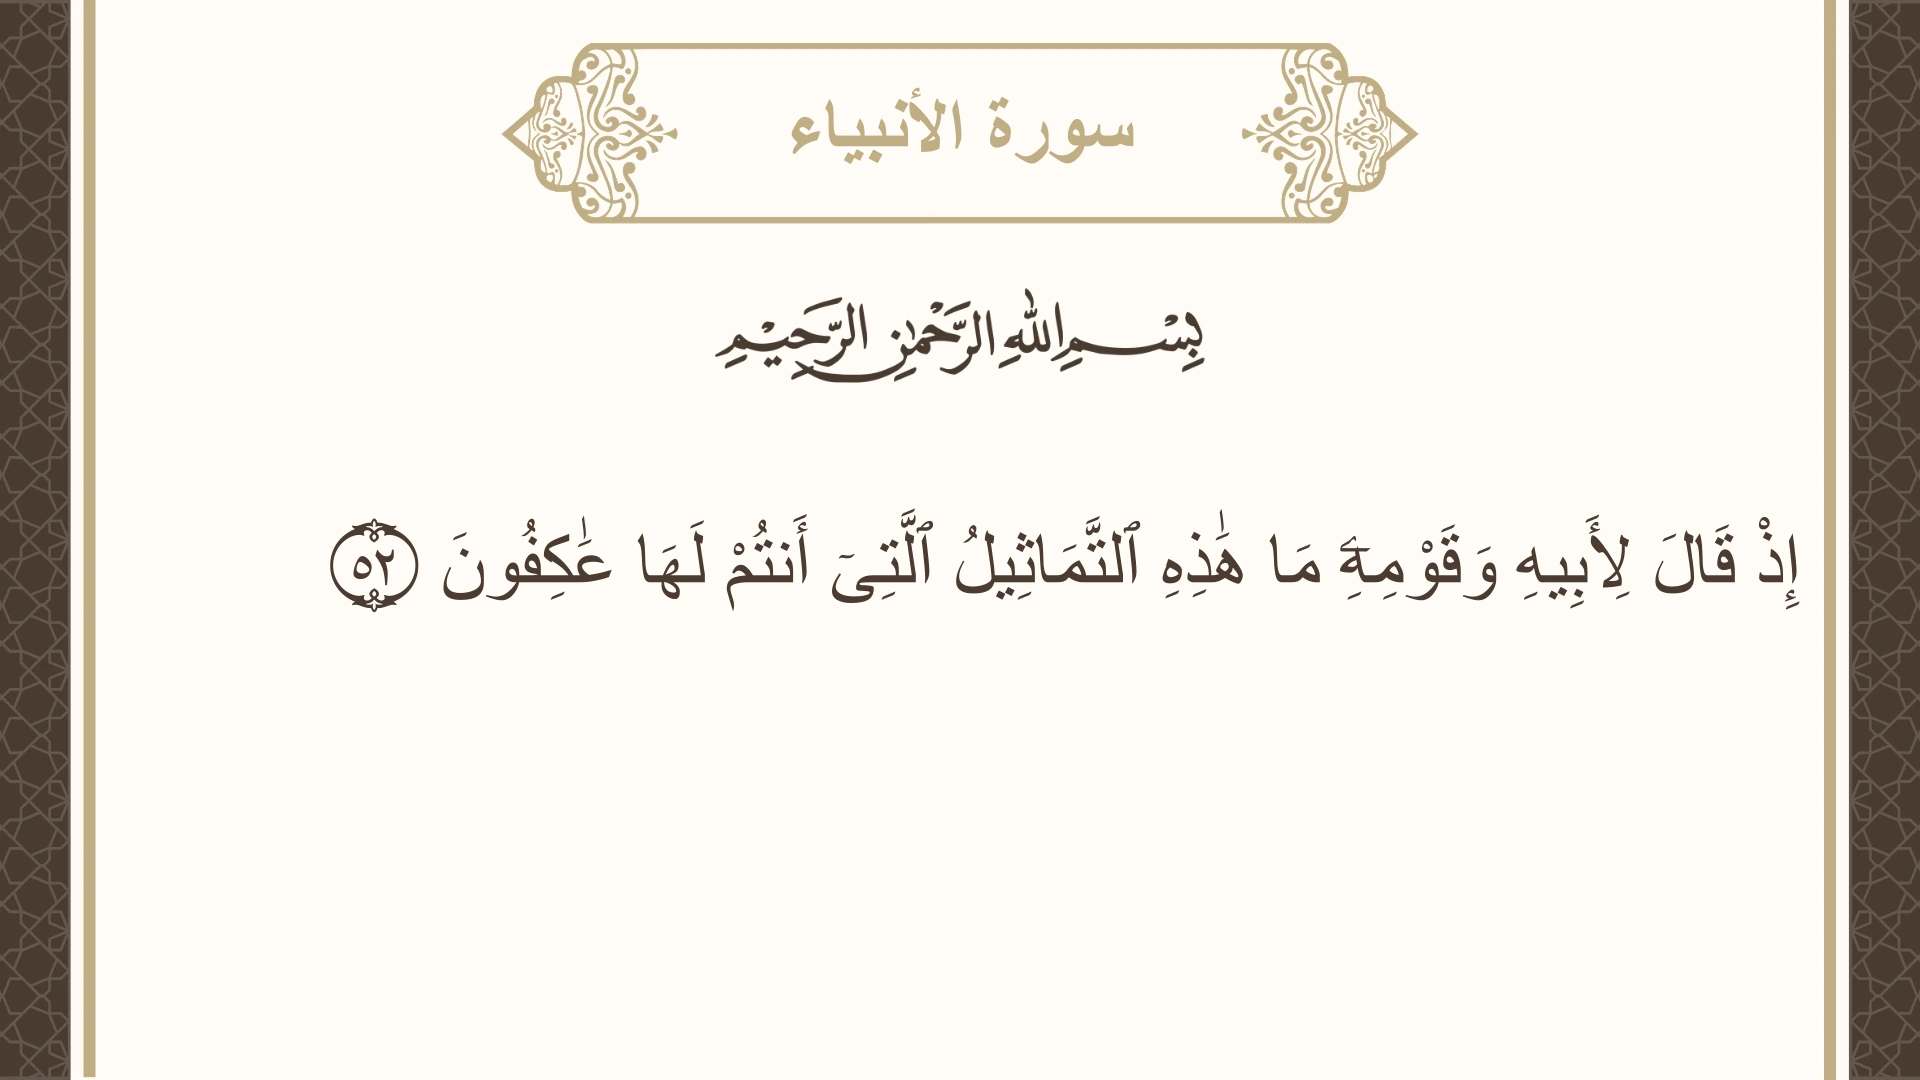 سورة الأنبياء
بِسْمِ اللهِ الرَّحْمٰنِ الرَّحِيْمِ
إِذْ قَالَ لِأَبِيهِ وَقَوْمِهِۦٓ مَا هَٰذِهِ ٱلتَّمَاثِيلُ ٱلَّتِىٓ أَنتُمْ لَهَا عَٰكِفُونَ ٥٢